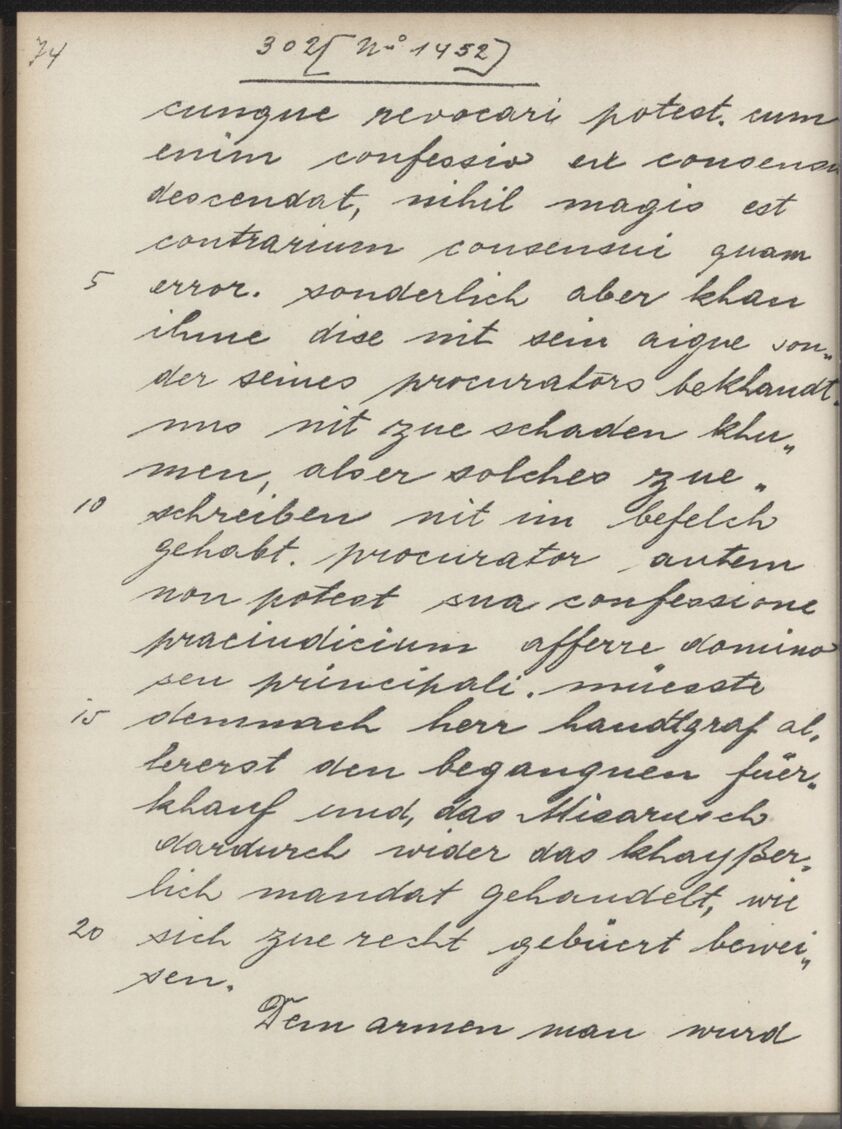 74
302 [ No 1452 ]
cunque revocari potest. cum
enim confessio ex consensu
descendat, nihil magis est
contrarium consensui quam
5 error. sonderlich aber khan
ihme dise nit sein aigne son„
der seines procurators bekhandt„
nus nit zue schaden khu„
men, als er solches zue„
10 schreiben nit im befelch
gehabt. procurator autem
non potest sua confessione
praeiudicium afferre domino
seu principali. müesste
15 demnach herr handtgraf al„
lererst den begangnen füer„
khauf und, das Misarusch
dardurch wider das khayßer„
lich mandat gehandelt, wie
20 sich zue recht gebüert bewei„
sen.
Dem armen man wurd